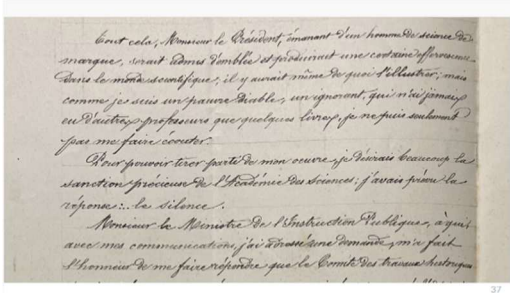 Tout cela, Monsieur le Président, émanant d'un homme de science de
marque, serait admis d'emblée et produirait une certaine effervescence
dans le monde scientifique, il y aurait même de quoi l'illustrer; mais
comme je suis un pauvre diable, un ignorant, qui n'ai jamais
eu d'autres professeurs que quelques livres, je ne puis seulement
pas me faire écouter.
Pour pouvoir tirer parti de mon œuvre, je désirais beaucoup la
sanction précieuse de l'Académie des Sciences; j'avais prévu la
réponse:.. le silence.
Monsieur le Ministre de l'Instruction Publique, à qui,
avec mes communications, j'ai adressé une demande, m'a fait
l'honneur de me faire répondre que le Comité des travaux historiques
37